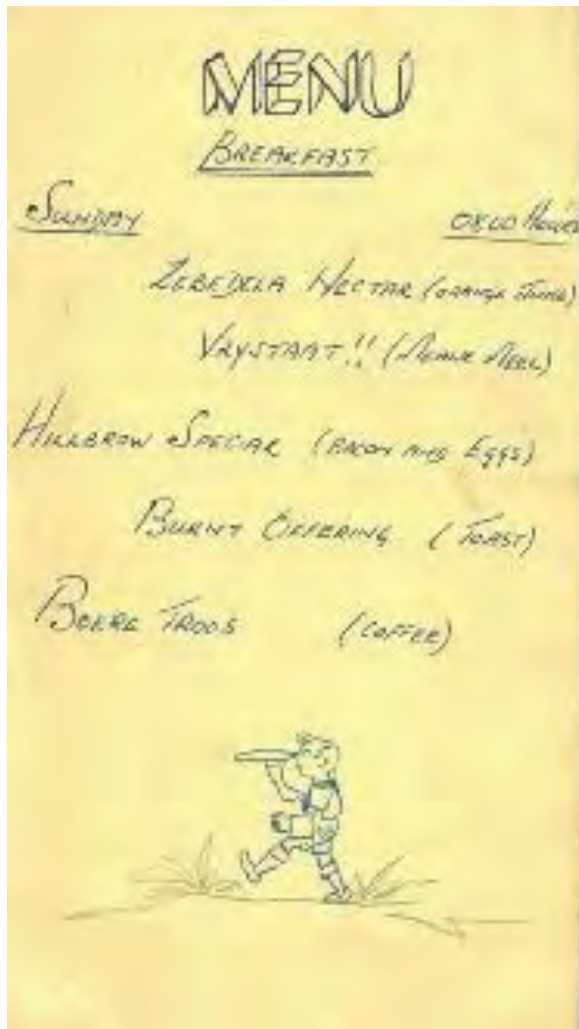 MENU
BREAKFAST
SUNDAY 0800 HOURS
ZEBEDELA NECTAR (ORANGE JUICE)
VRYSTAAT!! (MEALIE MEEL)
HILLBROW SPECIAL (BACON AND EGGS)
BURNT OFFERING (TOAST)
BOERE TROOS (COFFEE)